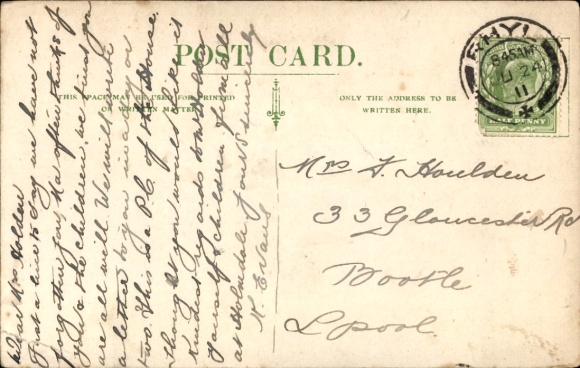 POST CARD.
THIS SPACE MAY BE USED FOR PRINTED
OR WRITTEN MATTER
ONLY THE ADDRESS TO BE
WRITTEN HERE.
RHYL
8.45AM
24
11
HALF PENNY
Mrs F. Houlden
33 Gloucester Rd
Bootle
Lpool
Dear Mrs Holden
Just a line to say we have not
forgotten you. Ma often thinks of
you & the children, we find you
are all well. We will write
a letter to you in a day or
two. This is a P.C. of the House.
thought you would like it
Kindest regards to Mr Holden
yourself & children from all
at Holmdale yours sincerely
N. Evans